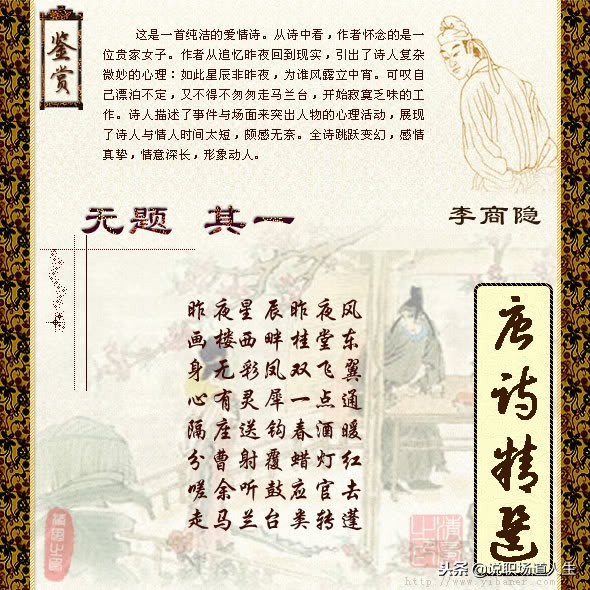 鉴赏
这是一首纯洁的爱情诗。从诗中看,作者怀念的是一
位贵家女子。作者从追忆昨夜回到现实,引出了诗人复杂
微妙的心理:如此星辰非昨夜,为谁风露立中宵。可叹自
己漂泊不定,又不得不匆匆走马兰台,开始寂寞乏味的工
作。诗人描述了事件与场面来突出人物的心理活动,展现
了诗人与情人时间太短,颇感无奈。全诗跳跃变幻,感情
真挚,情意深长,形象动人。
无题 其一
李商隐
昨夜星辰昨夜风
画楼西畔桂堂东
身无彩凤双飞翼
心有灵犀一点通
隔座送钩春酒暖
分曹射覆蜡灯红
嗟余听鼓应官去
走马兰台类转蓬
唐诗精选
头条 @说职场道人生
http://www.yibaner.com